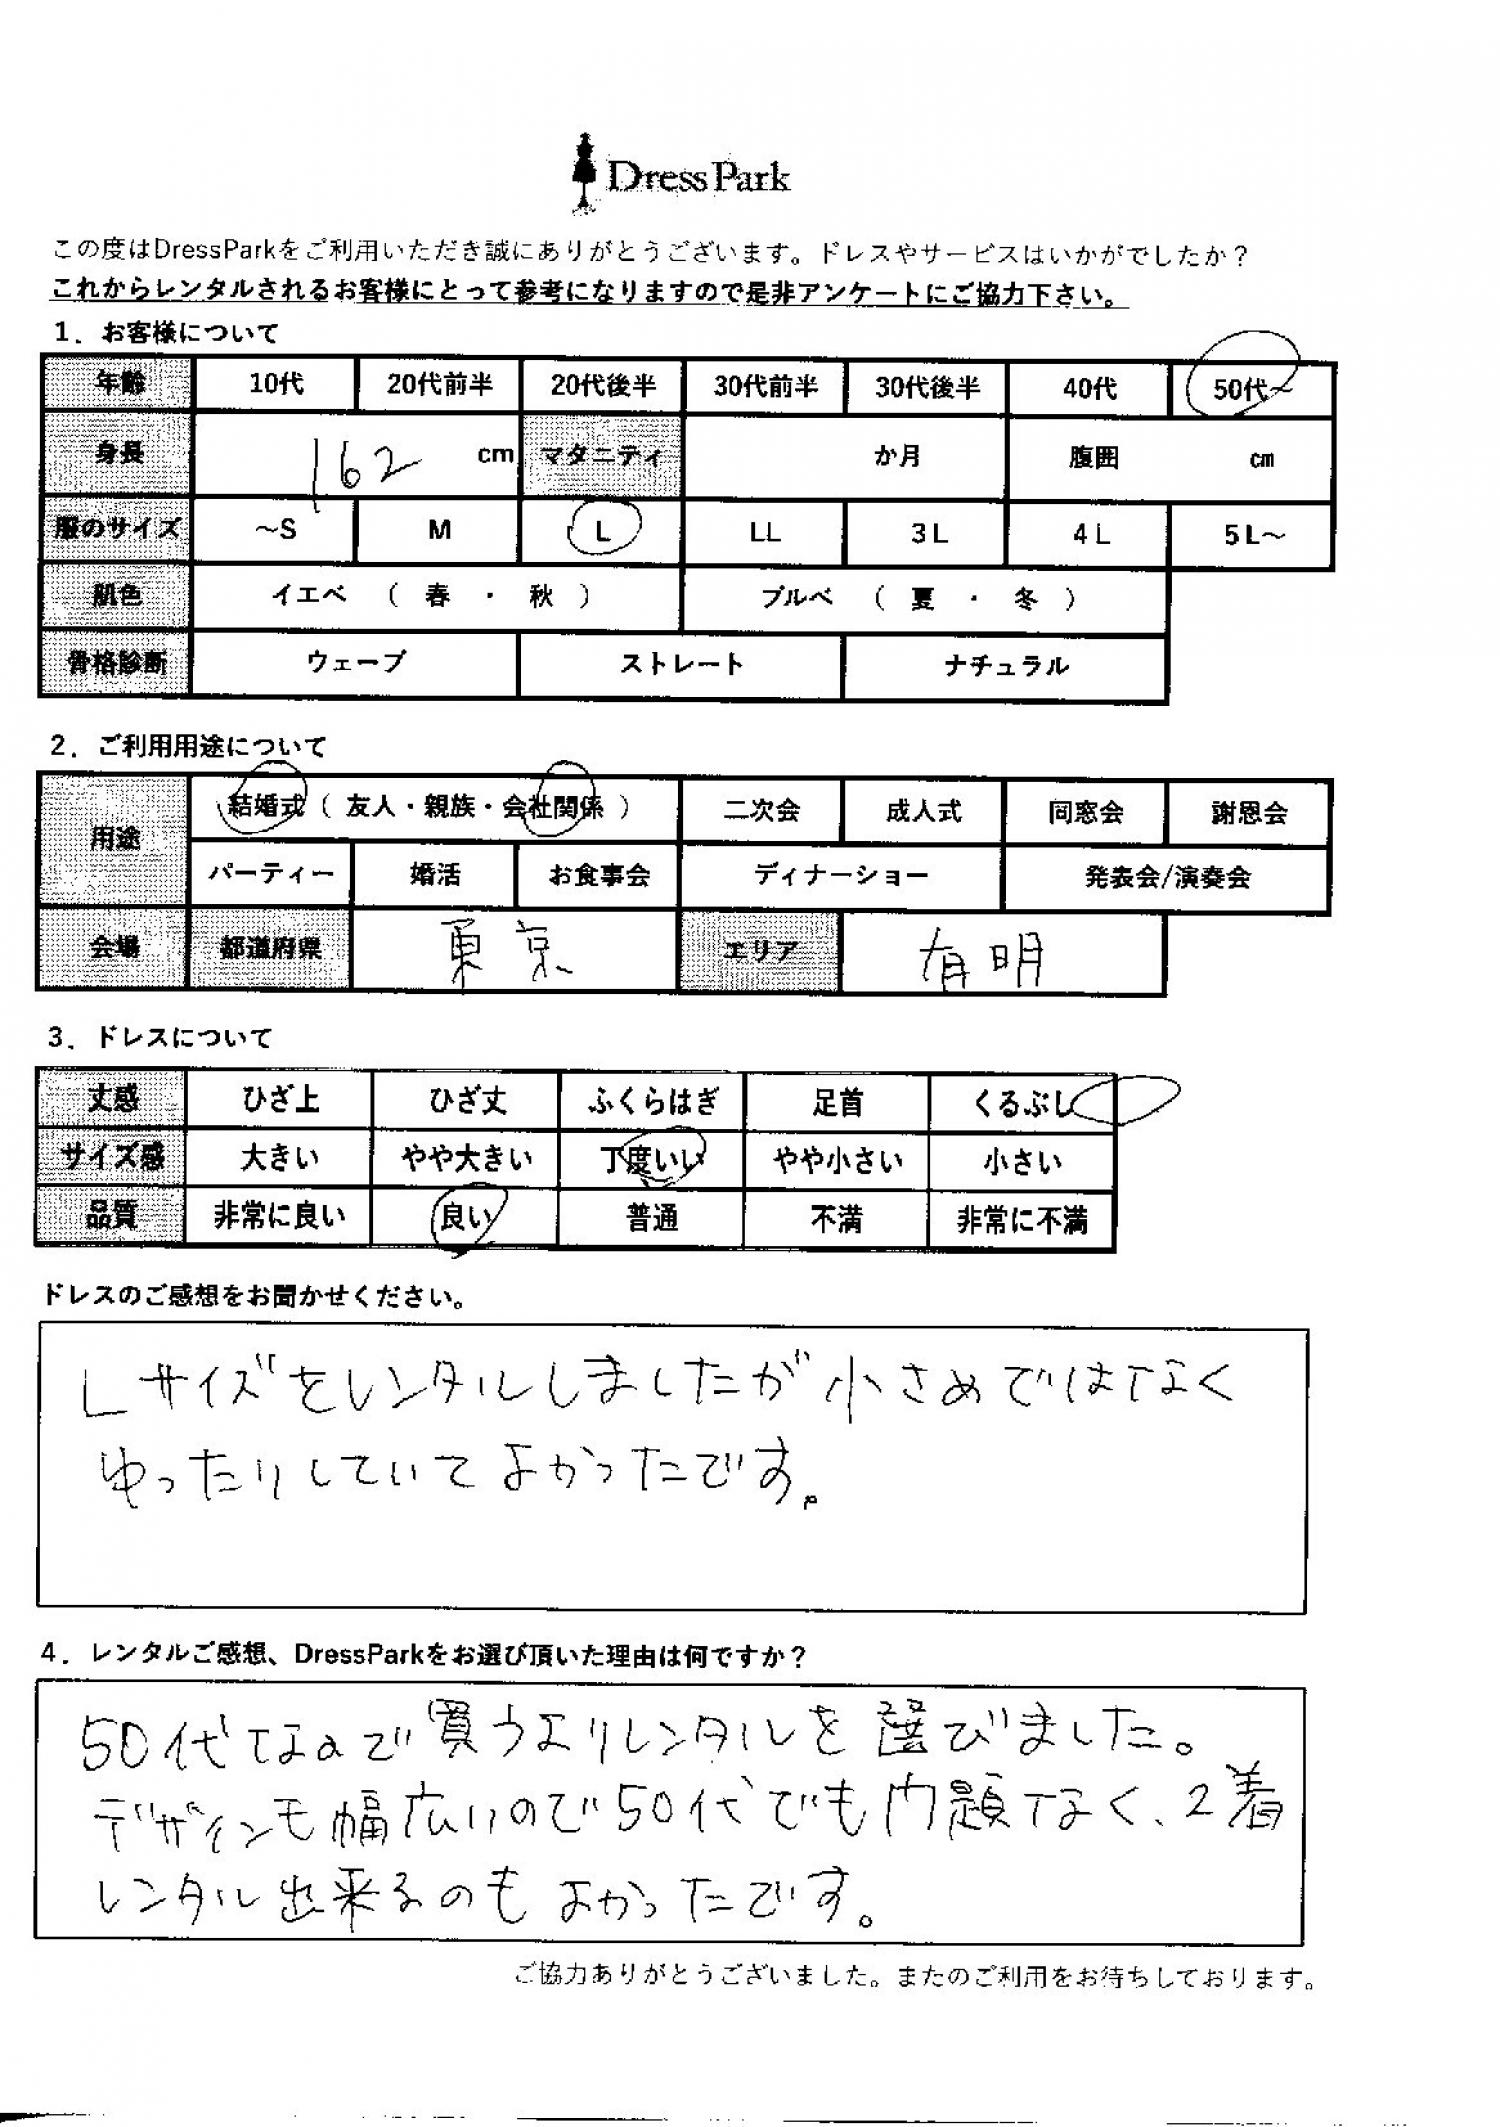 DressPark
この度はDressParkをご利用いただき誠にありがとうございます。ドレスやサービスはいかがでしたか？
これからレンタルされるお客様にとって参考になりますので是非アンケートにご協力下さい。
1．お客様について
年齢 10代 20代前半 20代後半 30代前半 30代後半 40代 50代～
身長 162 cm マタニティ か月 腹囲 cm
服のサイズ ～S M L LL 3L 4L 5L～
肌色 イエベ （ 春 ・ 秋 ） ブルベ （ 夏 ・ 冬 ）
骨格診断 ウェーブ ストレート ナチュラル
2．ご利用用途について
用途 結婚式（ 友人・親族・会社関係 ） 二次会 成人式 同窓会 謝恩会
パーティー 婚活 お食事会 ディナーショー 発表会/演奏会
会場 都道府県 東京 エリア 有明
3．ドレスについて
丈感 ひざ上 ひざ丈 ふくらはぎ 足首 くるぶし
サイズ感 大きい やや大きい 丁度いい やや小さい 小さい
品質 非常に良い 良い 普通 不満 非常に不満
ドレスのご感想をお聞かせください。
Lサイズをレンタルしましたが小さめではなく
ゆったりしていてよかったです。
4．レンタルご感想、DressParkをお選び頂いた理由は何ですか？
50代なので買うよりレンタルを選びました。
デザインも幅広いので50代でも問題なく、2着
レンタル出来るのもよかったです。
ご協力ありがとうございました。またのご利用をお待ちしております。